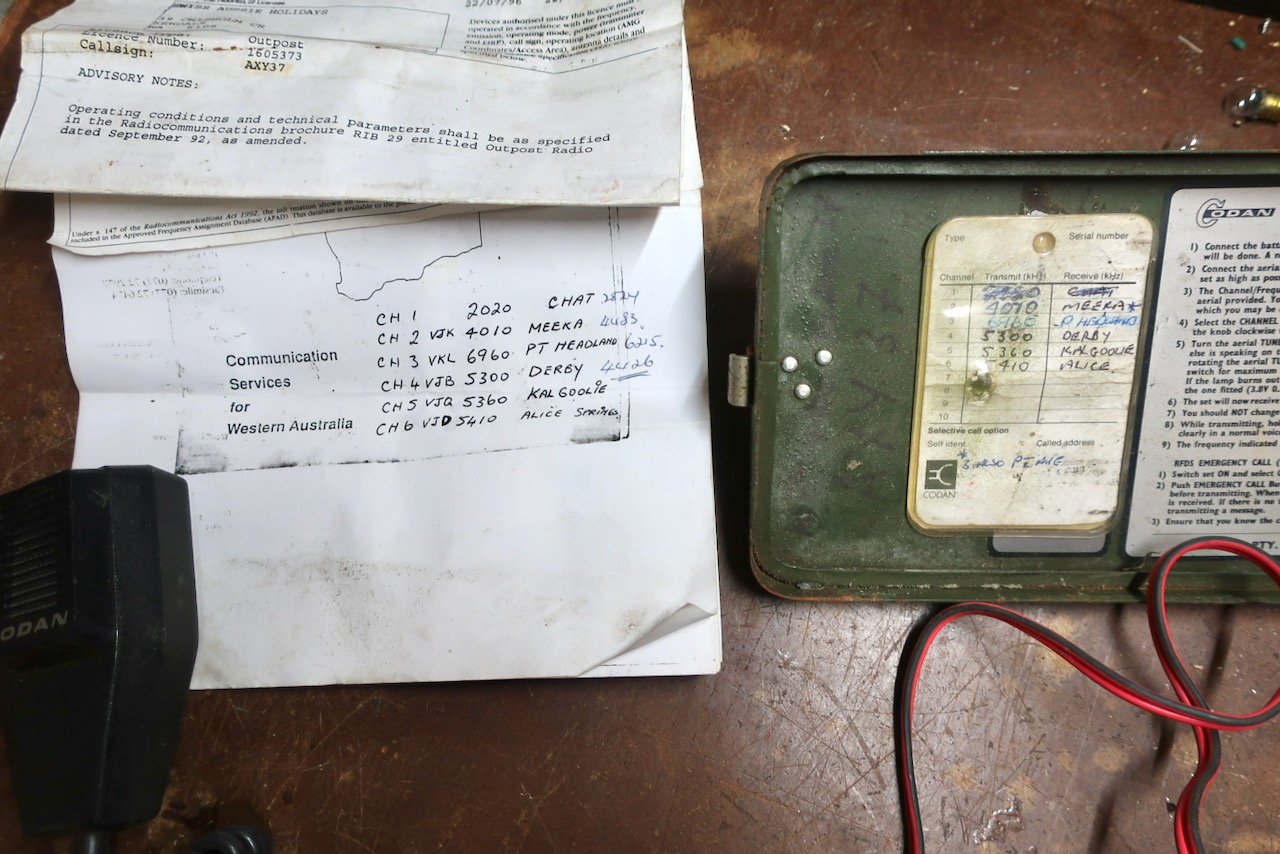 SWISS AUSSIE HOLIDAYS
22/07/96
Licence Number:
Callsign:
Outpost
1605373
AXY37
ADVISORY NOTES:
Devices authorised under this licence must
operated in accordance with the frequency,
emission, operating mode, power transmitter
and EIRP), call sign, operating location (AMG
Coordinates/Access Area), antenna details and
Operating conditions and technical parameters shall be as specified
in the Radiocommunications brochure RIB 29 entitled Outpost Radio
dated September 92, as amended.
Under s. 147 of the Radiocommunications Act 1992, the information shown on
included in the Approved Frequency Assignment Database (AFAD). This database is available to the
CH 1 2020 CHAT
CH 2 VJK 4010 MEEKA 4483
CH 3 VKL 6960 PT HEADLAND 6215.
CH 4 VJB 5300 DERBY 4426
CH 5 VJQ 5360 KALGOOLIE
CH 6 VJD 5410 ALICE SPRINGS
Communication
Services
for
Western Australia
CODAN
Type Serial number
Channel Transmit (kHz) Receive (kHz)
1 CHAT
2 4010 MEEKA*
3 6960 P HEDLAND
4 5300 DERBY
5 5360 KALGOOLIE
6 410 ALICE
7
8
9
10
Selective call option
Self ident. Called address
CODAN
CODAN
1) Connect the
will be done. A
2) Connect the aerial
set as high as
3) The Channel/
aerial provided.
which you may be
4) Select the CHANNEL
the knob clockwise
5) Turn the aerial
else is speaking on
rotating the aerial
switch for maximum
If the lamp burns out
the one fitted (3.8V
6) The set will now receive
7) You should NOT change
8) While transmitting,
clearly in a normal
9) The frequency indicated
RFDS EMERGENCY CALL
1) Switch set ON and select
2) Push EMERGENCY CALL
before transmitting.
is received. If there is no
transmitting a message.
3) Ensure that you know the